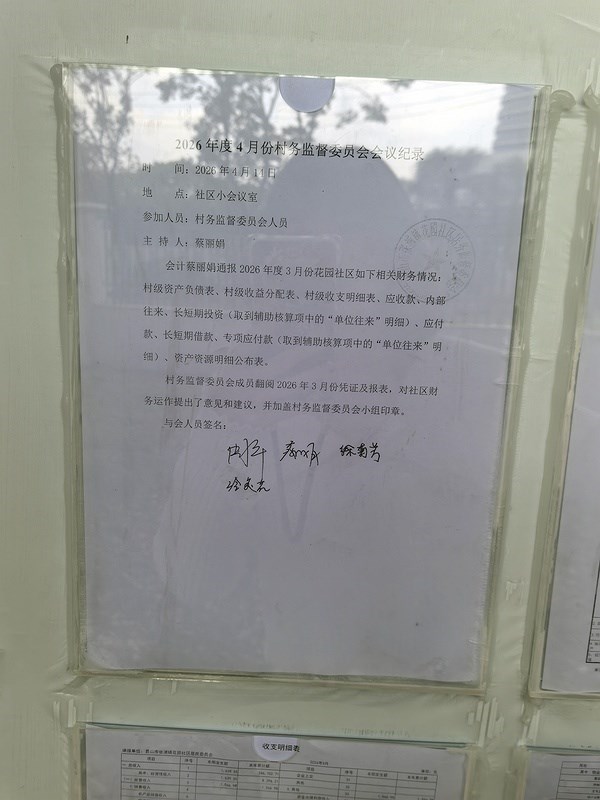 2026 年度 4 月份村务监督委员会会议纪录
时 间：2026 年 4 月 11 日
地 点：社区小会议室
参加人员：村务监督委员会人员
主 持 人：蔡丽娟
会计蔡丽娟通报 2026 年度 3 月份花园社区如下相关财务情况：
村级资产负债表、村级收益分配表、村级收支明细表、应收款、内部
往来、长短期投资（取到辅助核算项中的“单位往来”明细）、应付
款、长短期借款、专项应付款（取到辅助核算项中的“单位往来”明
细）、资产资源明细公布表。
村务监督委员会成员翻阅 2026 年 3 月份凭证及报表，对社区财
务运作提出了意见和建议，并加盖村务监督委员会小组印章。
与会人员签名：
收支明细表